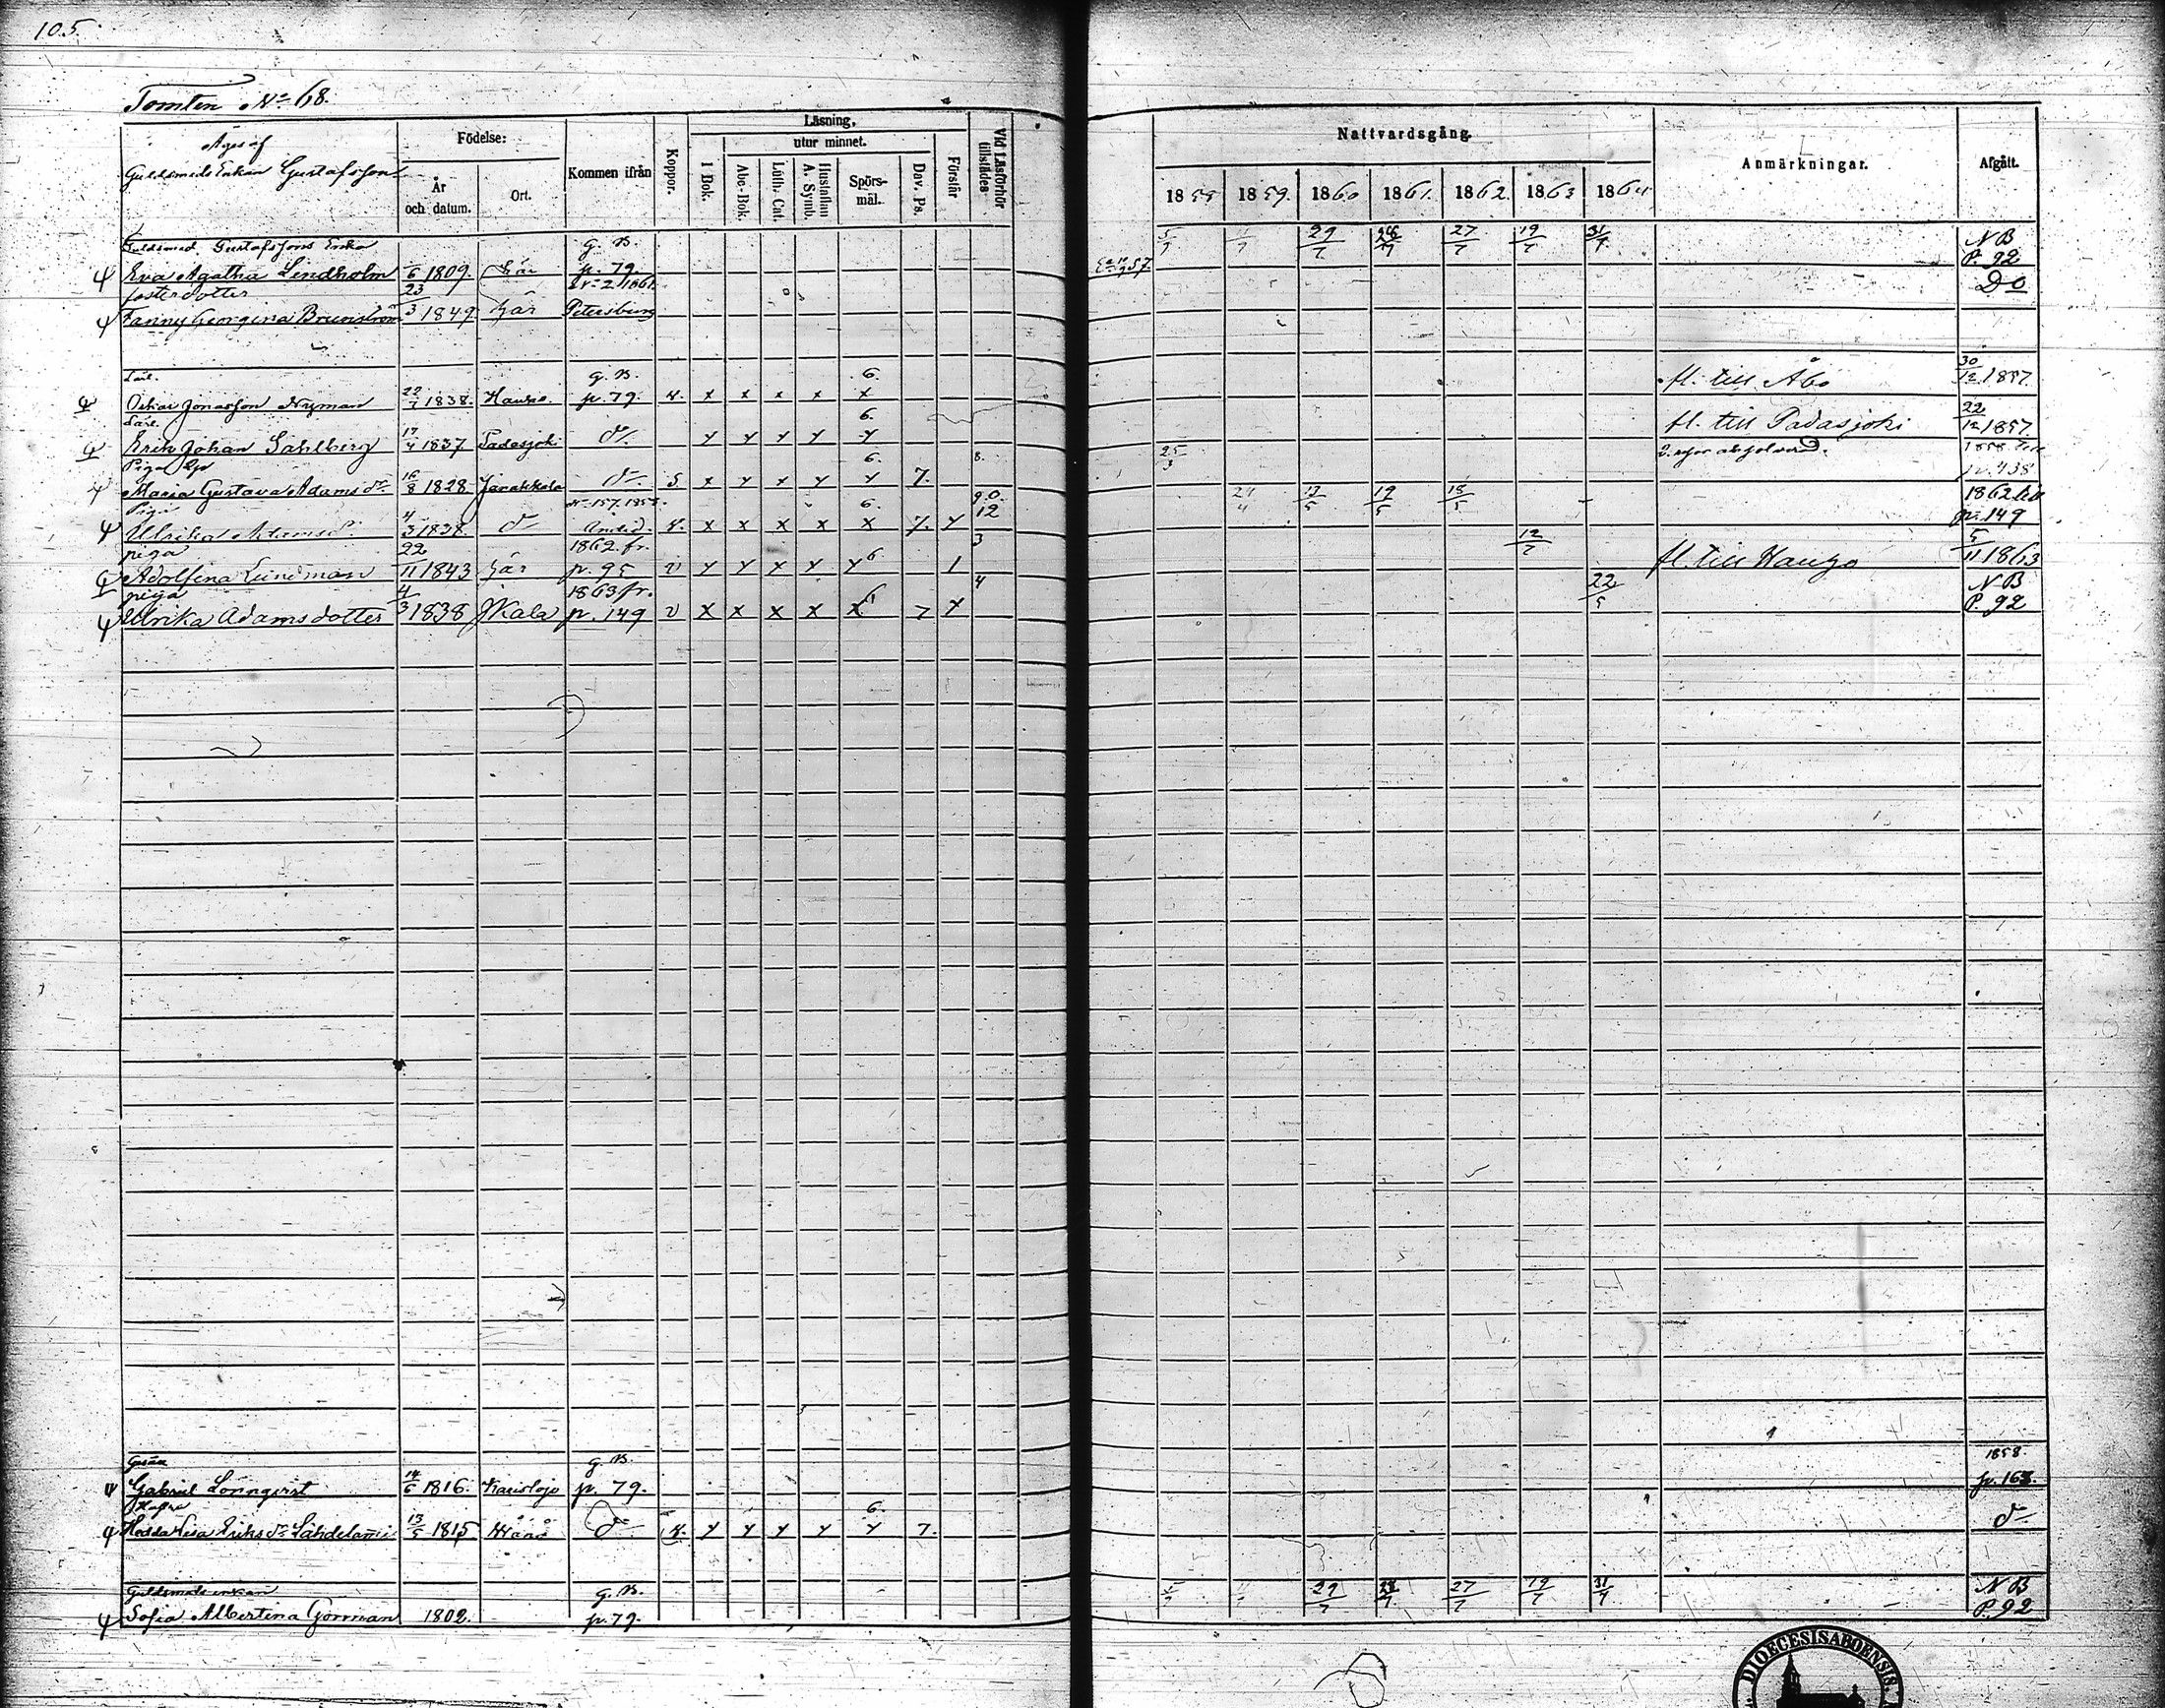 105.
Tomten No 68.
Äges af
Guldsmeds Enkan Gustafsson
Födelse:
År och datum.
Ort.
Kommen ifrån
Koppor.
Läsning,
I Bok.
utur minnet.
Abc-Bok.
Luth. Cat.
Hustaflan A. Symb.
Spörsmål.
Dav. Ps.
Förstår
Vid Läsförhör tillstädes
Nattvardsgång.
1858 1859. 1860 1861. 1862. 1863 1864
Anmärkningar.
Afgått.
Guldsmed Gustafssons Enka g. B. 29/7 27/7 19/7 31/7 NB
Eva Agatha Lindholm /6 1809. här p. 79. P. 92
fosterdotter 23 1861. Do
Fanny Georgina Brunström /3 1849 här Petersburg
Lärl. g. B. 6. 30
Oskar Jonasson Nyman 22/7 1838. Hauho. p. 79. v. x x x x x fl. till Åbo /12 1857
Lärl. 6. 22
Erik Johan Sahlberg 17/4 1837 Padasjoki do y y y y y fl. till Padasjoki /12 1857
Piga 6. 8. 25/3
Maria Gustava Adams dr 16/8 1828 Janakkala do s x y y y y 7. p. 438
Piga 4 p. 157. 1858. 6. 9.0. 21/4 13/5 19/5 18/5 1862 till
Ulrika Adams d. /3 1838. do v. x x x x x 7. y 12 p. 149
piga 22 1862. fr. 3 12/7 5
Adolfina Lundman /11 1843 här p. 95 v y y x y y 6 1 fl. till Hauho /11 1863
piga 4 1863 fr. 4 22/5 NB
Ulrika Adamsdotter /3 1838 JKala p. 149 v x x x x x 6 7 y P. 92
g. B. 1858.
Gabriel Lönnqvist 14/6 1816. Karislojo p. 79. p. 163.
6.
Hedda Lisa Eriks dr 13/5 1815 do v. y y y y y 7. do
Guldsmeds enkan g. B. 29/7 27/7 19/7 31/7 NB
Sofia Albertina Görman 1802. p. 79. P. 92
DIOECESIS ABOENSIS.